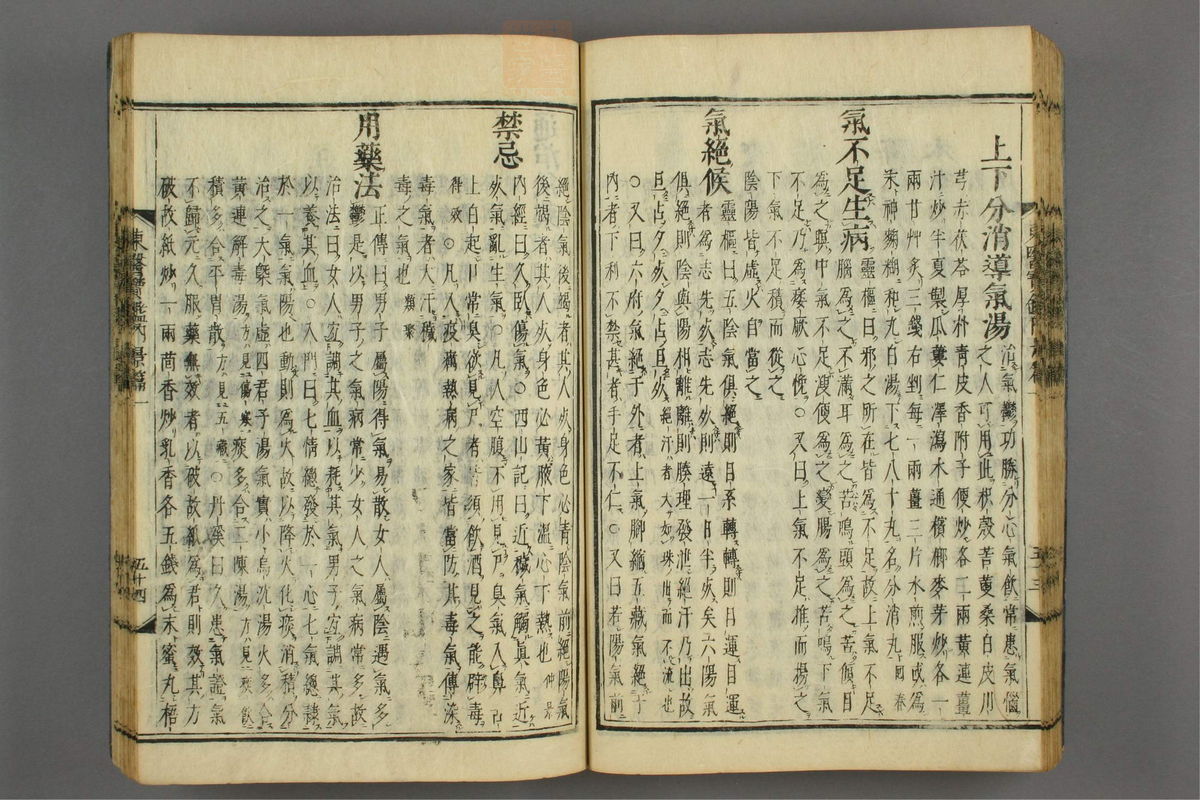 上下分消導氣湯治氣鬱功勝分心氣飮常患氣惱
之人可用此枳殼苦莄桑白皮川
芎赤茯苓厚朴靑皮香附子便炒各二兩黃連薑
汁炒半夏製瓜蔞仁澤瀉木通檳榔麥芽炒各一
兩甘艸炙三錢右剉每一兩薑三片水煎服或爲
末神麴糊和丸白湯下七八十丸名分消丸回春
氣不足生病靈樞曰邪之所在皆爲不足故上氣不足
爲之與中氣不足溲便爲之變腸爲之苦鳴下氣
不足乃爲痿厥心悗○又曰上氣不足推而揚之
下氣不足積而從之
陰陽皆虛火自當之
氣絕候靈樞曰五陰氣俱絕則目系轉轉則目運目運
者爲志先死志先死則遠一日半死矣六陽氣
俱絕則陰與陽相離離則腠理發泄絕汗乃出故
旦占夕死夕占旦死絕汗者大如珠出而不流也
○又曰六府氣絕于外者上氣脚縮五藏氣絕于
內者下利不禁甚者手足不仁○又曰若陽氣前
絕陰氣後竭者其人死身色必靑陰氣前絕陽氣
後竭者其人死身色必黃腋下溫心下熱也仲景
禁忌內經曰久臥傷氣○西山記曰近穢氣觸眞氣近
死氣亂生氣○凡人空腹不用見尸臭氣入鼻
上白起口常臭欲見尸者皆須飮酒見之能辟毒
得效○凡人疫癘熱病之家皆當防其毒氣傳染
毒氣者大汗穢
毒之氣也類聚
用藥法正傳曰男子屬陽得氣易散女人屬陰遇氣多
鬱是以男子之氣病常少女人之氣病常多故
治法曰女人宜調其血以耗其氣男子宜調其氣
以養其血○入門曰七情總發於一心七氣總隷
於一氣氣陽也動則爲火故以降火化痰消積分
治之大槩氣虛四君子湯氣實小烏沈湯火多合
黃連解毒湯方見傷寒痰多合二陳湯方見痰飮
積多合平胃散方見五藏○丹溪曰久患氣證氣
不歸元久服藥無效者以破故紙爲君則效其方
破故紙炒一兩茴香炒乳香各五錢爲末蜜丸梧
東醫寶鑑內景篇一
五十四